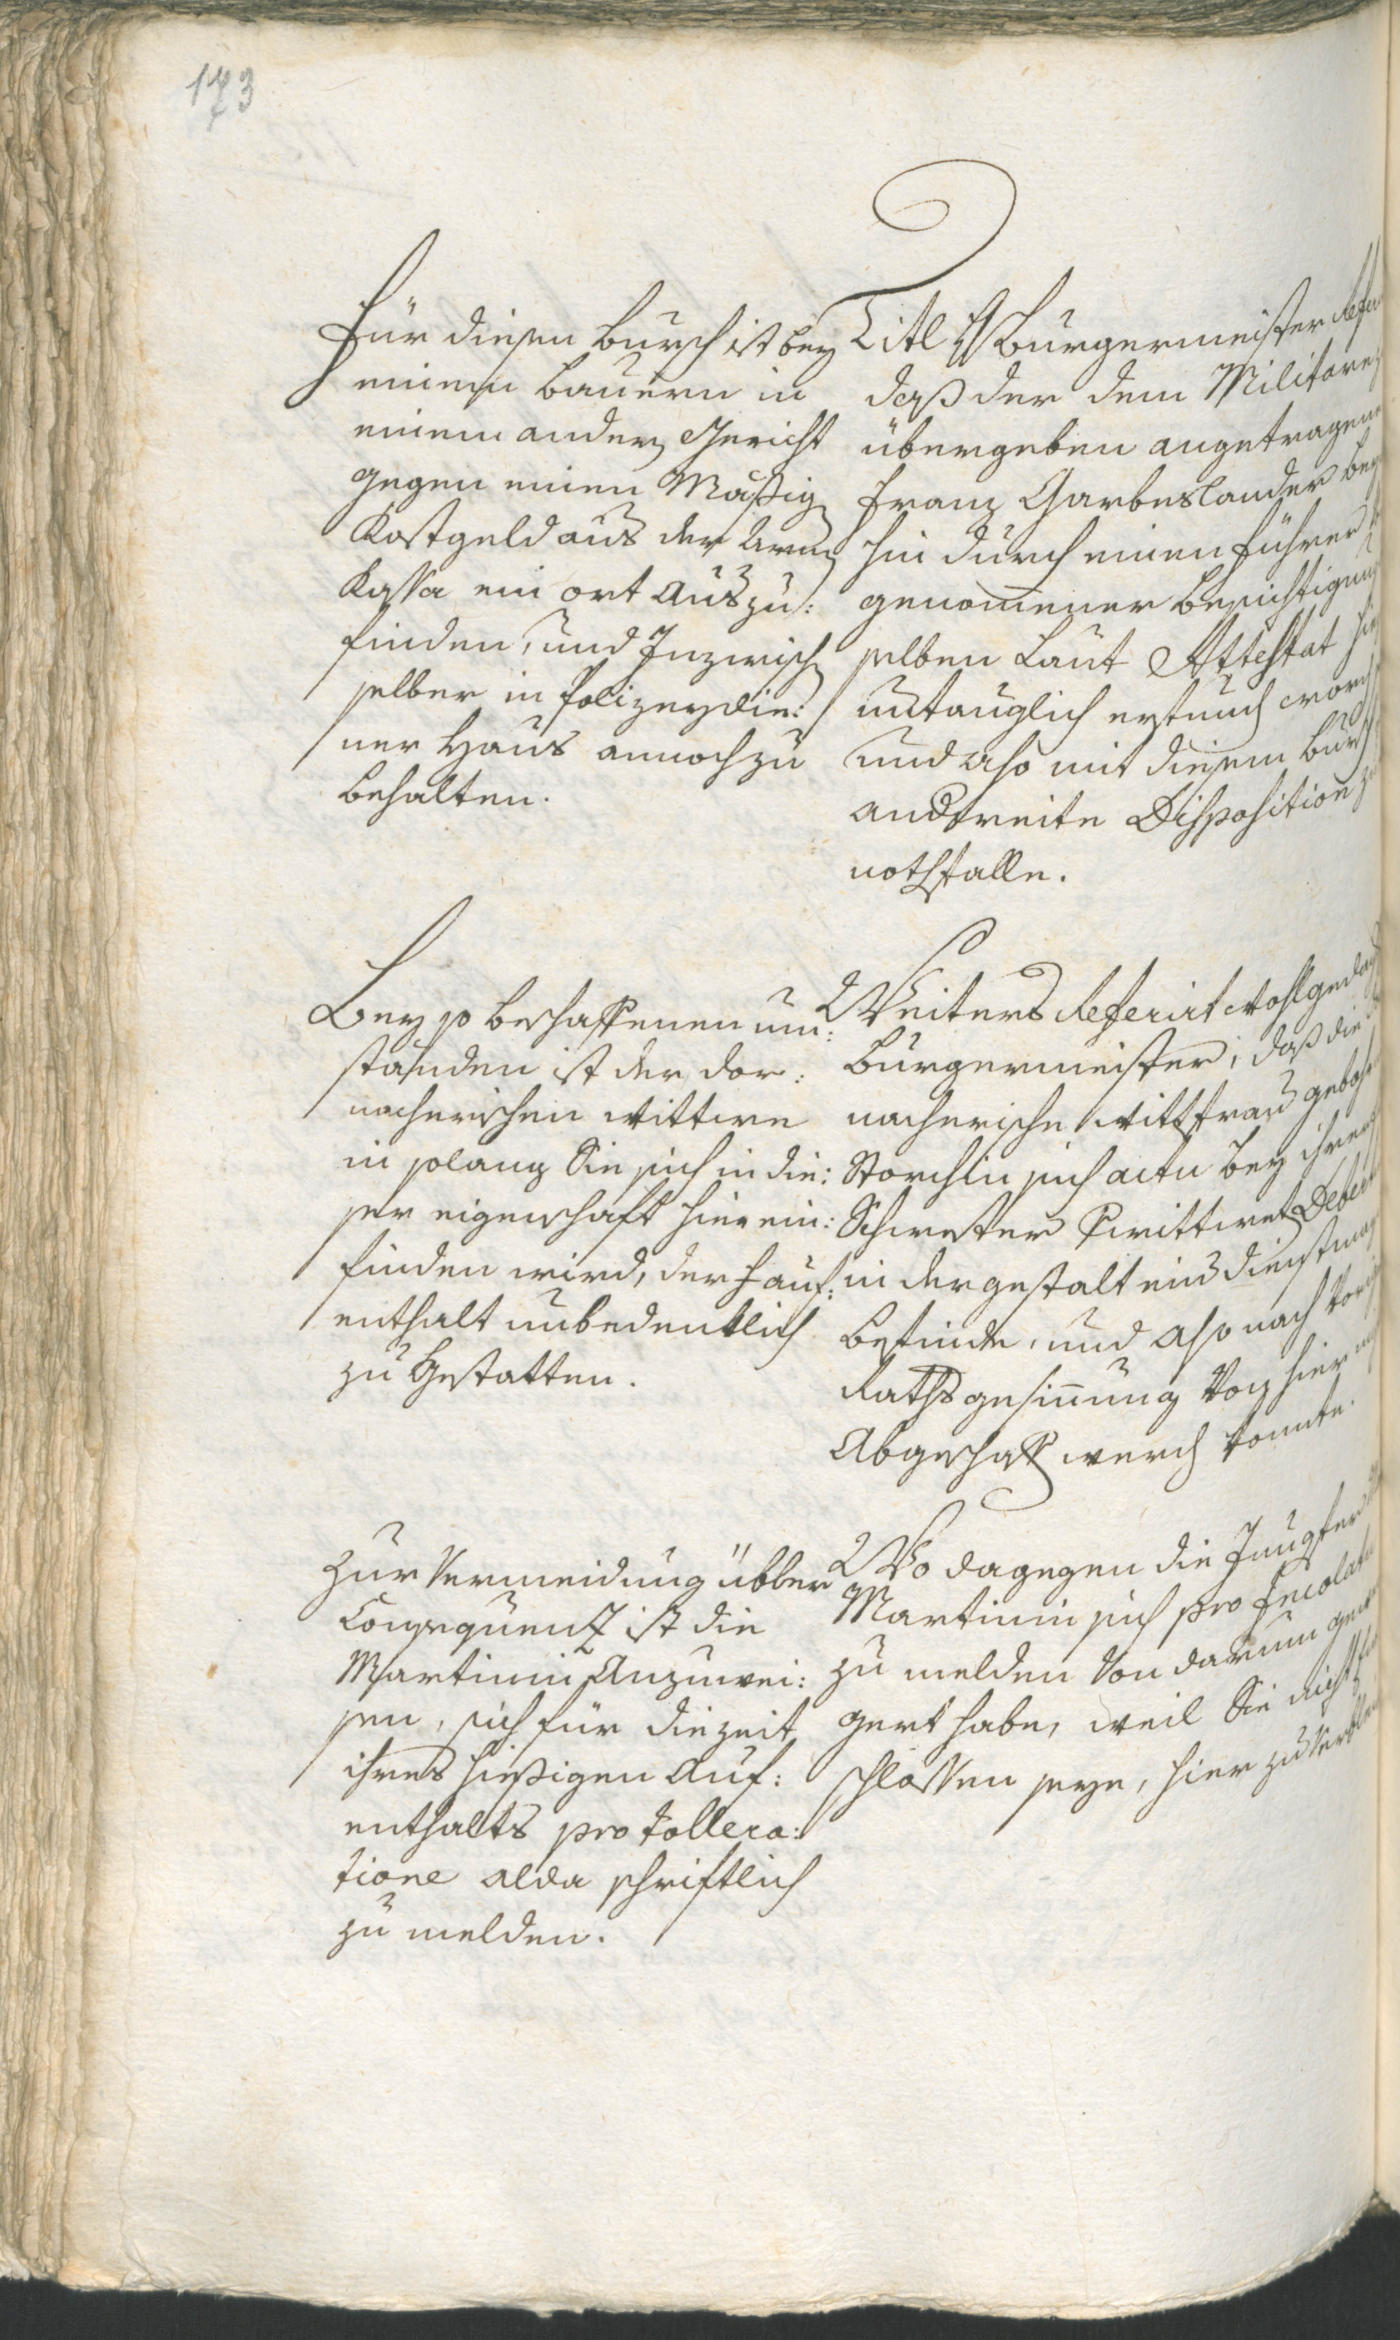 173
Für diesen Bursch ist bey
einem Bauern in
einem andern Gericht
gegen einen Mäßig
Kostgeld aus der Armen
Kassa ein ort auszu:
finden, und Inzwischen
selber in Polizeydie:
ner Haus annoch zu
behalten.
Titl H Burgermeister
daß der dem Militare
übergeben angetragene
Franz Garbeslander bey
hin durch einen Führer
genomener Besichtigung
selben Laut Attestat
untauglich erfund word
und also mit diesem Bursch
andweite Disposition
nothfalle.
Bey so beschaffenen um:
ständen ist der dor:
nacherischen Wittwe
in solang Sie sich in die:
ser eigenschaft hier ein:
finden wird, der H auf:
enthalt unbedenklich
zu Gestatten.
Weiters referirt Wohlgedach
Burgermeister, daß die
nacherische Wittfrau gebohr
Storchlin sich actu bey ihrer
Schwester
in dergestalt eins dienstmag
befinde, und also nach
Raths gesinnung von hier
Abgeschaft werd konnte.
Zur Vermeidung übler
Consequenz ist die
Martinin Anzuwei:
sen, sich für die zeit
ihres hießigen Auf:
enthalts pro tollera:
tione alda schriftlich
zu melden.
Wo dagegen die Jungfer
Martinin sich pro Incolatu
zu melden von darum
gert habe, weil Sie nicht
schlossen seye, hier zu